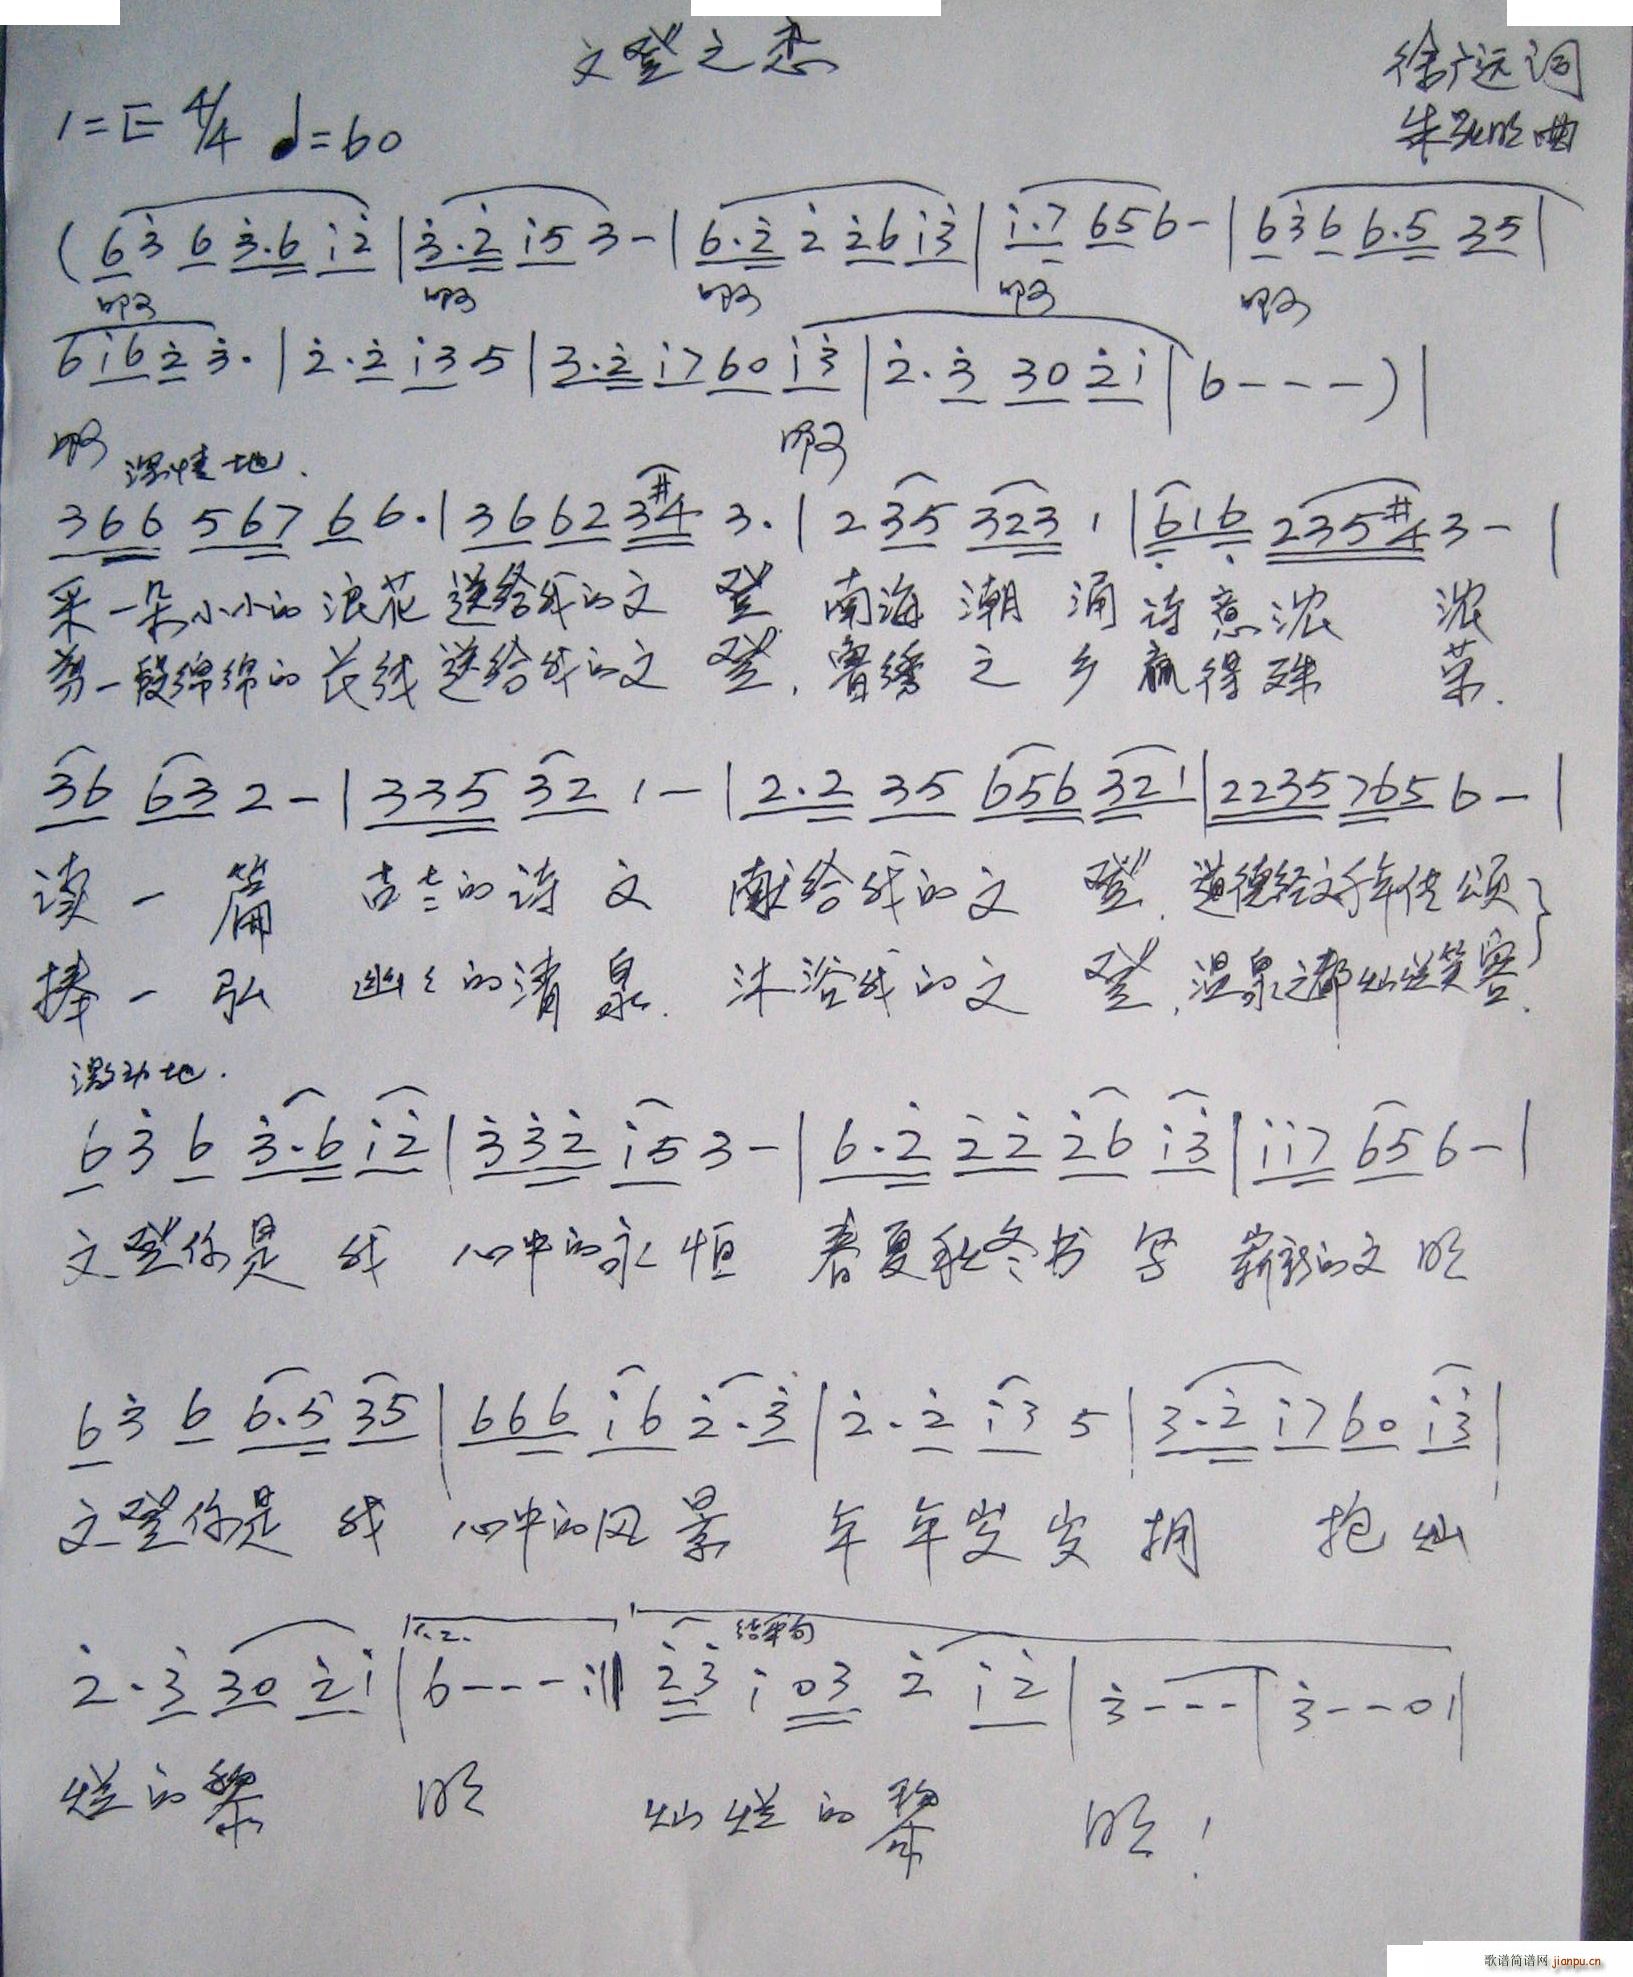 文登之恋
徐广远词
1=E 4/4 ♩=60
朱 明曲
(6 3̇ 6 3̇.6 i 2̇ | 3̇.2̇ i 5 3 - | 6.2̇ 2̇ 2̇ 6 i 3̇ | i.7 6 5 6 - | 6 3̇ 6 6.5 3 5 |
啊 啊 啊 啊 啊
6 i 6 2̇ 3̇. | 2̇.2̇ i 3 5 | 3.2̇ i 7 6 0 i 3̇ | 2̇.3̇ 3 0 2̇ i | 6 - - - ) |
啊 啊
深情地.
3 6 6 5 6 7 6 6. | 3 6 6 2 3 #4 3. | 2 3 5 3 2 3 1 | 6̣ 1 6̣ 2 3 5 #4 3 - |
采一朵小小的浪花送给我的文登 南海潮涌诗意浓 浓
剪一段绵绵的长线送给我的文登,鲁绣之乡赢得殊 荣.
3 6 6 3 2 - | 3 3 5 3 2 1 - | 2.2 3 5 6 5 6 3 2 1 | 2 2 3 5 7 6 5 6 - |
读一篇 古老的诗文 献给我的文登,道德经文千年传颂
捧一弘 幽幽的清泉.沐浴我的文登,温泉之都灿烂笑容.
激动地.
6 3̇ 6 3̇.6 i 2̇ | 3̇ 3̇ 2̇ i 5 3 - | 6.2̇ 2̇ 2̇ 2̇ 6 i 3̇ | i i 7 6 5 6 - |
文登你是 我 心中的永恒 春夏秋冬书写 崭新的文明
6 3̇ 6 6.5 3 5 | 6 6 6 i 6 2̇.3̇ | 2̇.2̇ i 3 5 | 3.2̇ i 7 6 0 i 3̇ |
文登你是 我 心中的风景 年年岁岁拥 抱灿
1.2. 结束句
2̇.3̇ 3 0 2̇ i | 6 - - - :| 2̇ 3̇ i 0 3 2̇ i 2̇ | 3̇ - - - | 3̇ - - 0 |
烂的黎 明 灿烂的黎 明!
歌谱简谱网 jianpu.cn